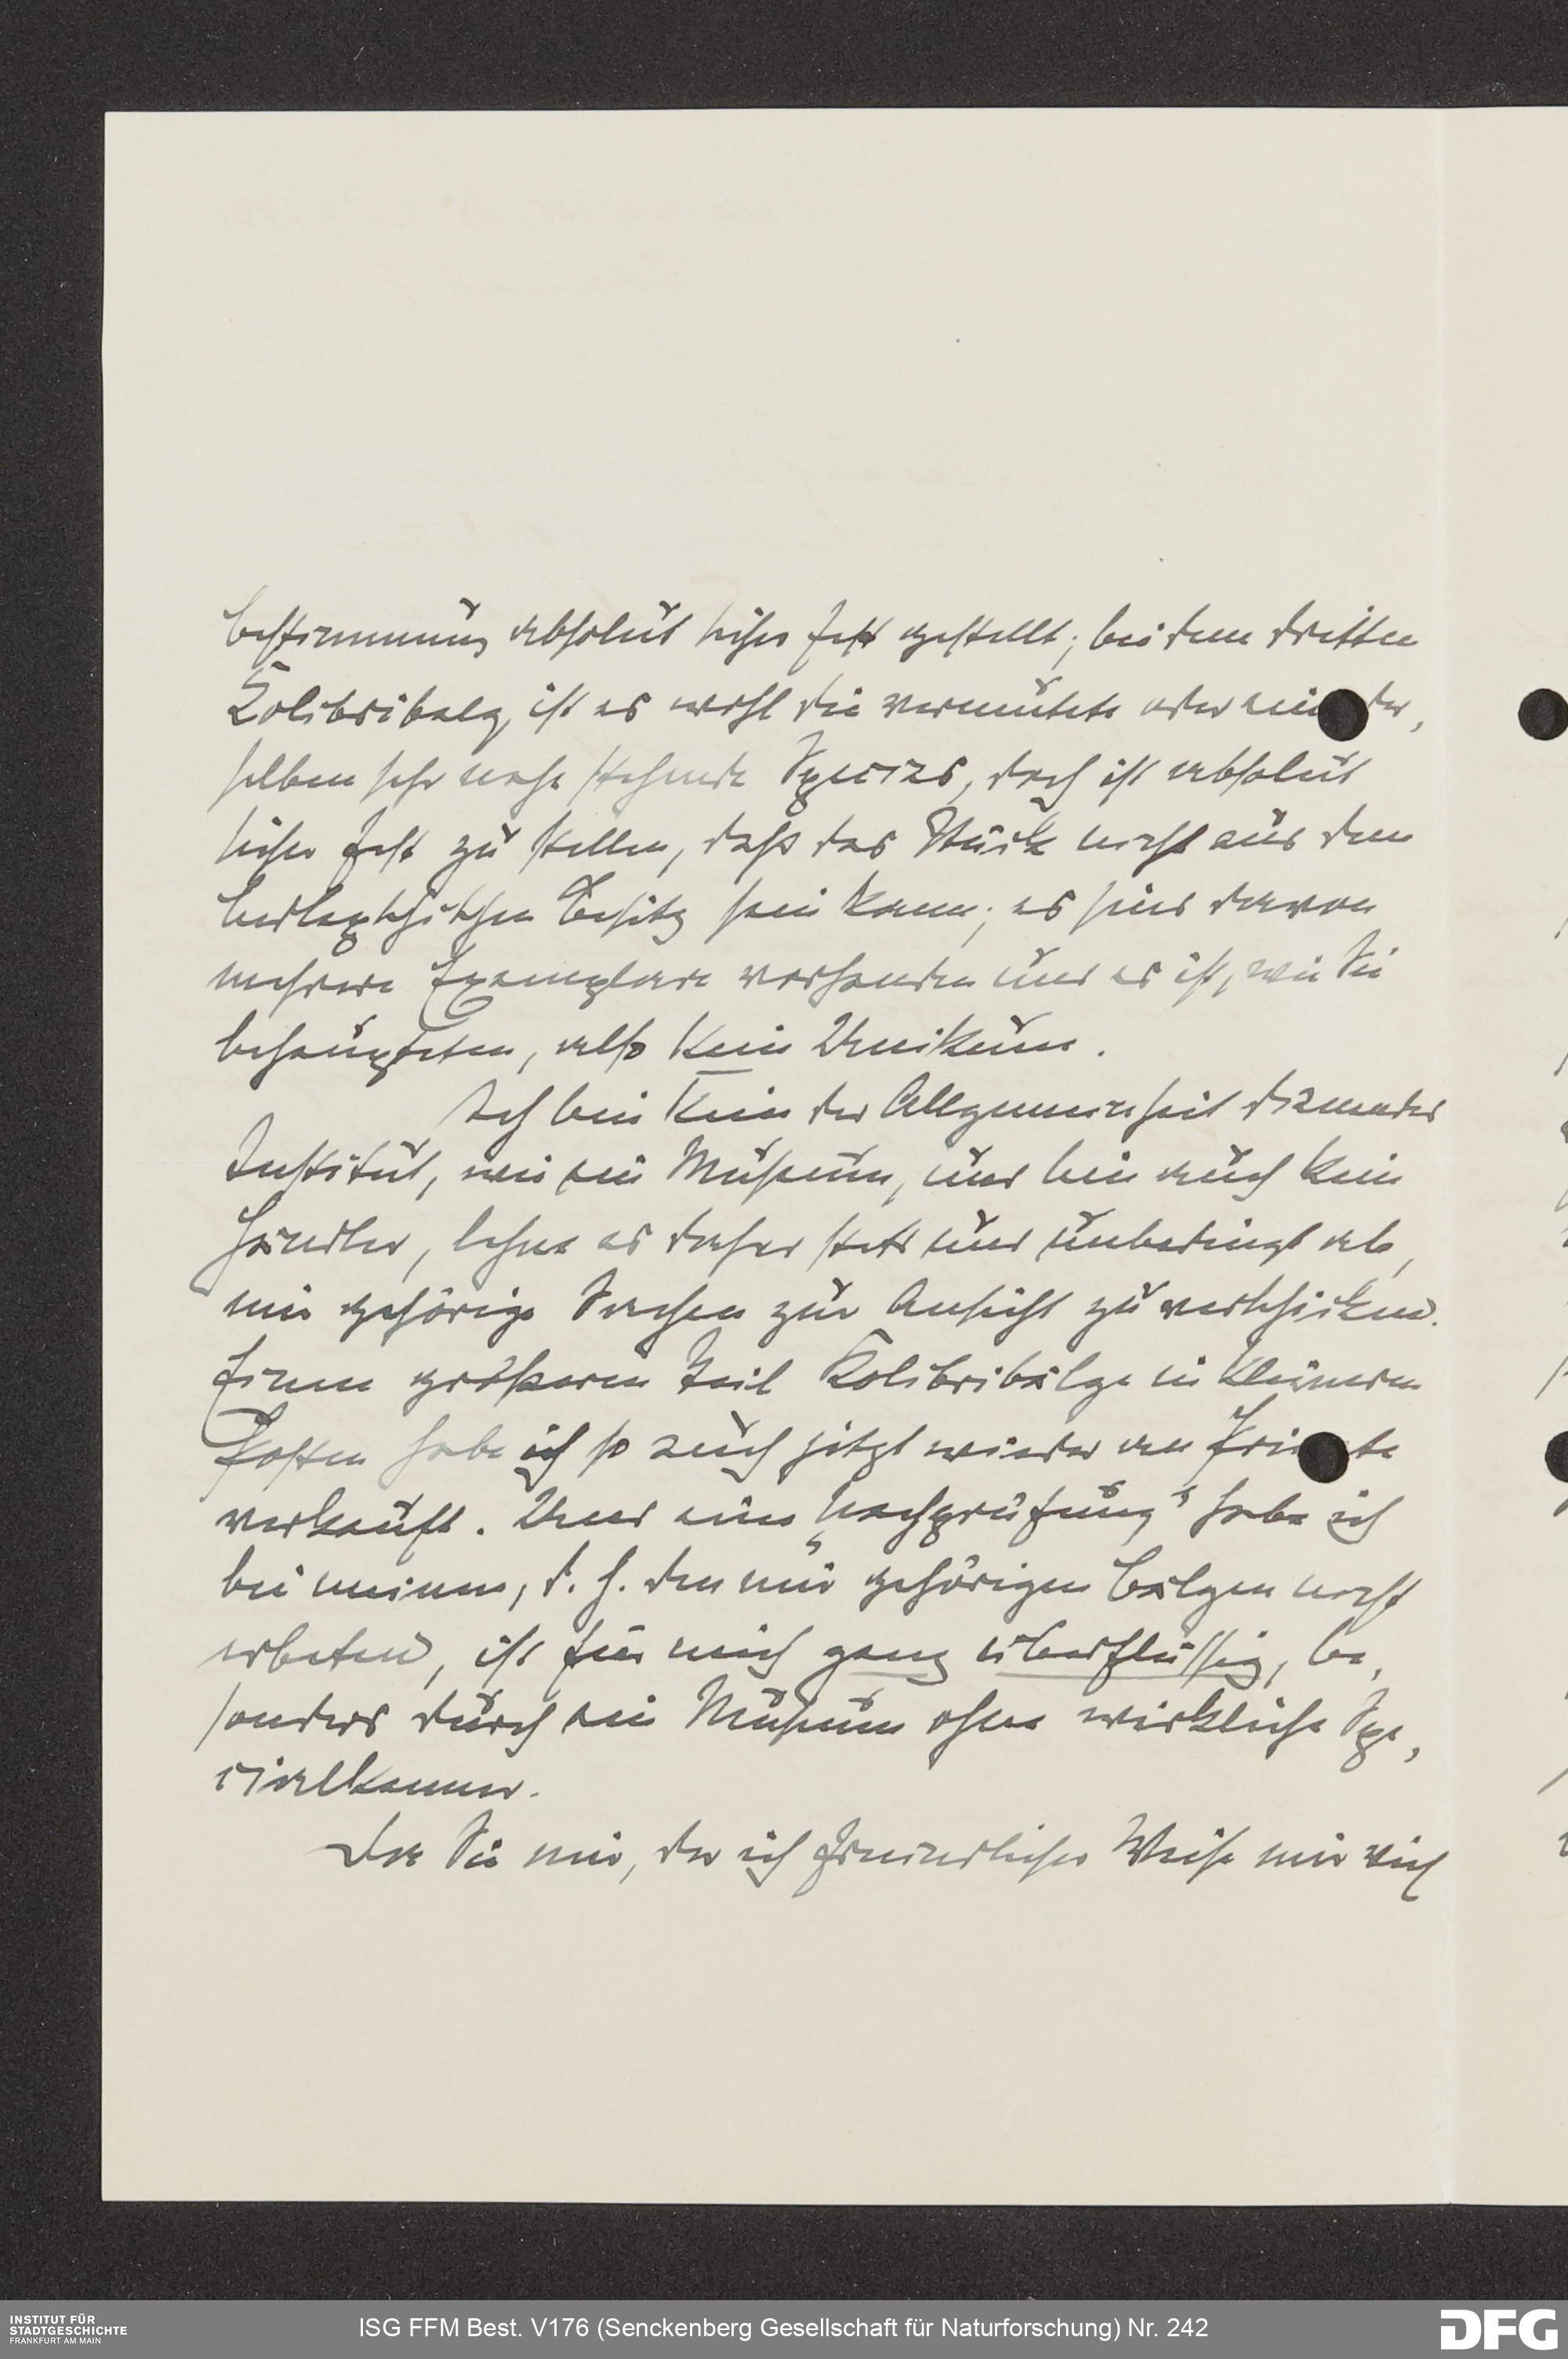 Bestimmung absolut sicher fest gestellt; bei dem dritten
Kolibribalg, ist es wohl die vermutete oder eine der,
selben sehr nahe stehende Species, doch ist absolut
sicher fest zu stellen, daß das Stück nicht aus dem
Berlepschschen Besitz sein kann; es sind davon
mehrere Exemplare vorhanden und es ist, wie Sie
behaupteten, also kein Unikum.
Ich bin kein der Allgemeinheit dienendes
Institut, wie ein Museum, und bin auch kein
Händler, lehne es daher stets und unbedingt ab,
mir gehörige Sachen zur Ansicht zu verschicken.
Einen größeren Teil Kolibribälge in kleineren
Posten habe ich so auch jetzt wieder an Private
verkauft. Und eine „Nachprüfung“ habe ich
bei meinen, d. h. den mir gehörigen Bälgen nicht
erbeten, ist für mich ganz überflüssig, be,
sonders durch ein Museum ohne wirkliche Spe,
cialkenner.
Da Sie mir, da ich freundlicher Weise mir